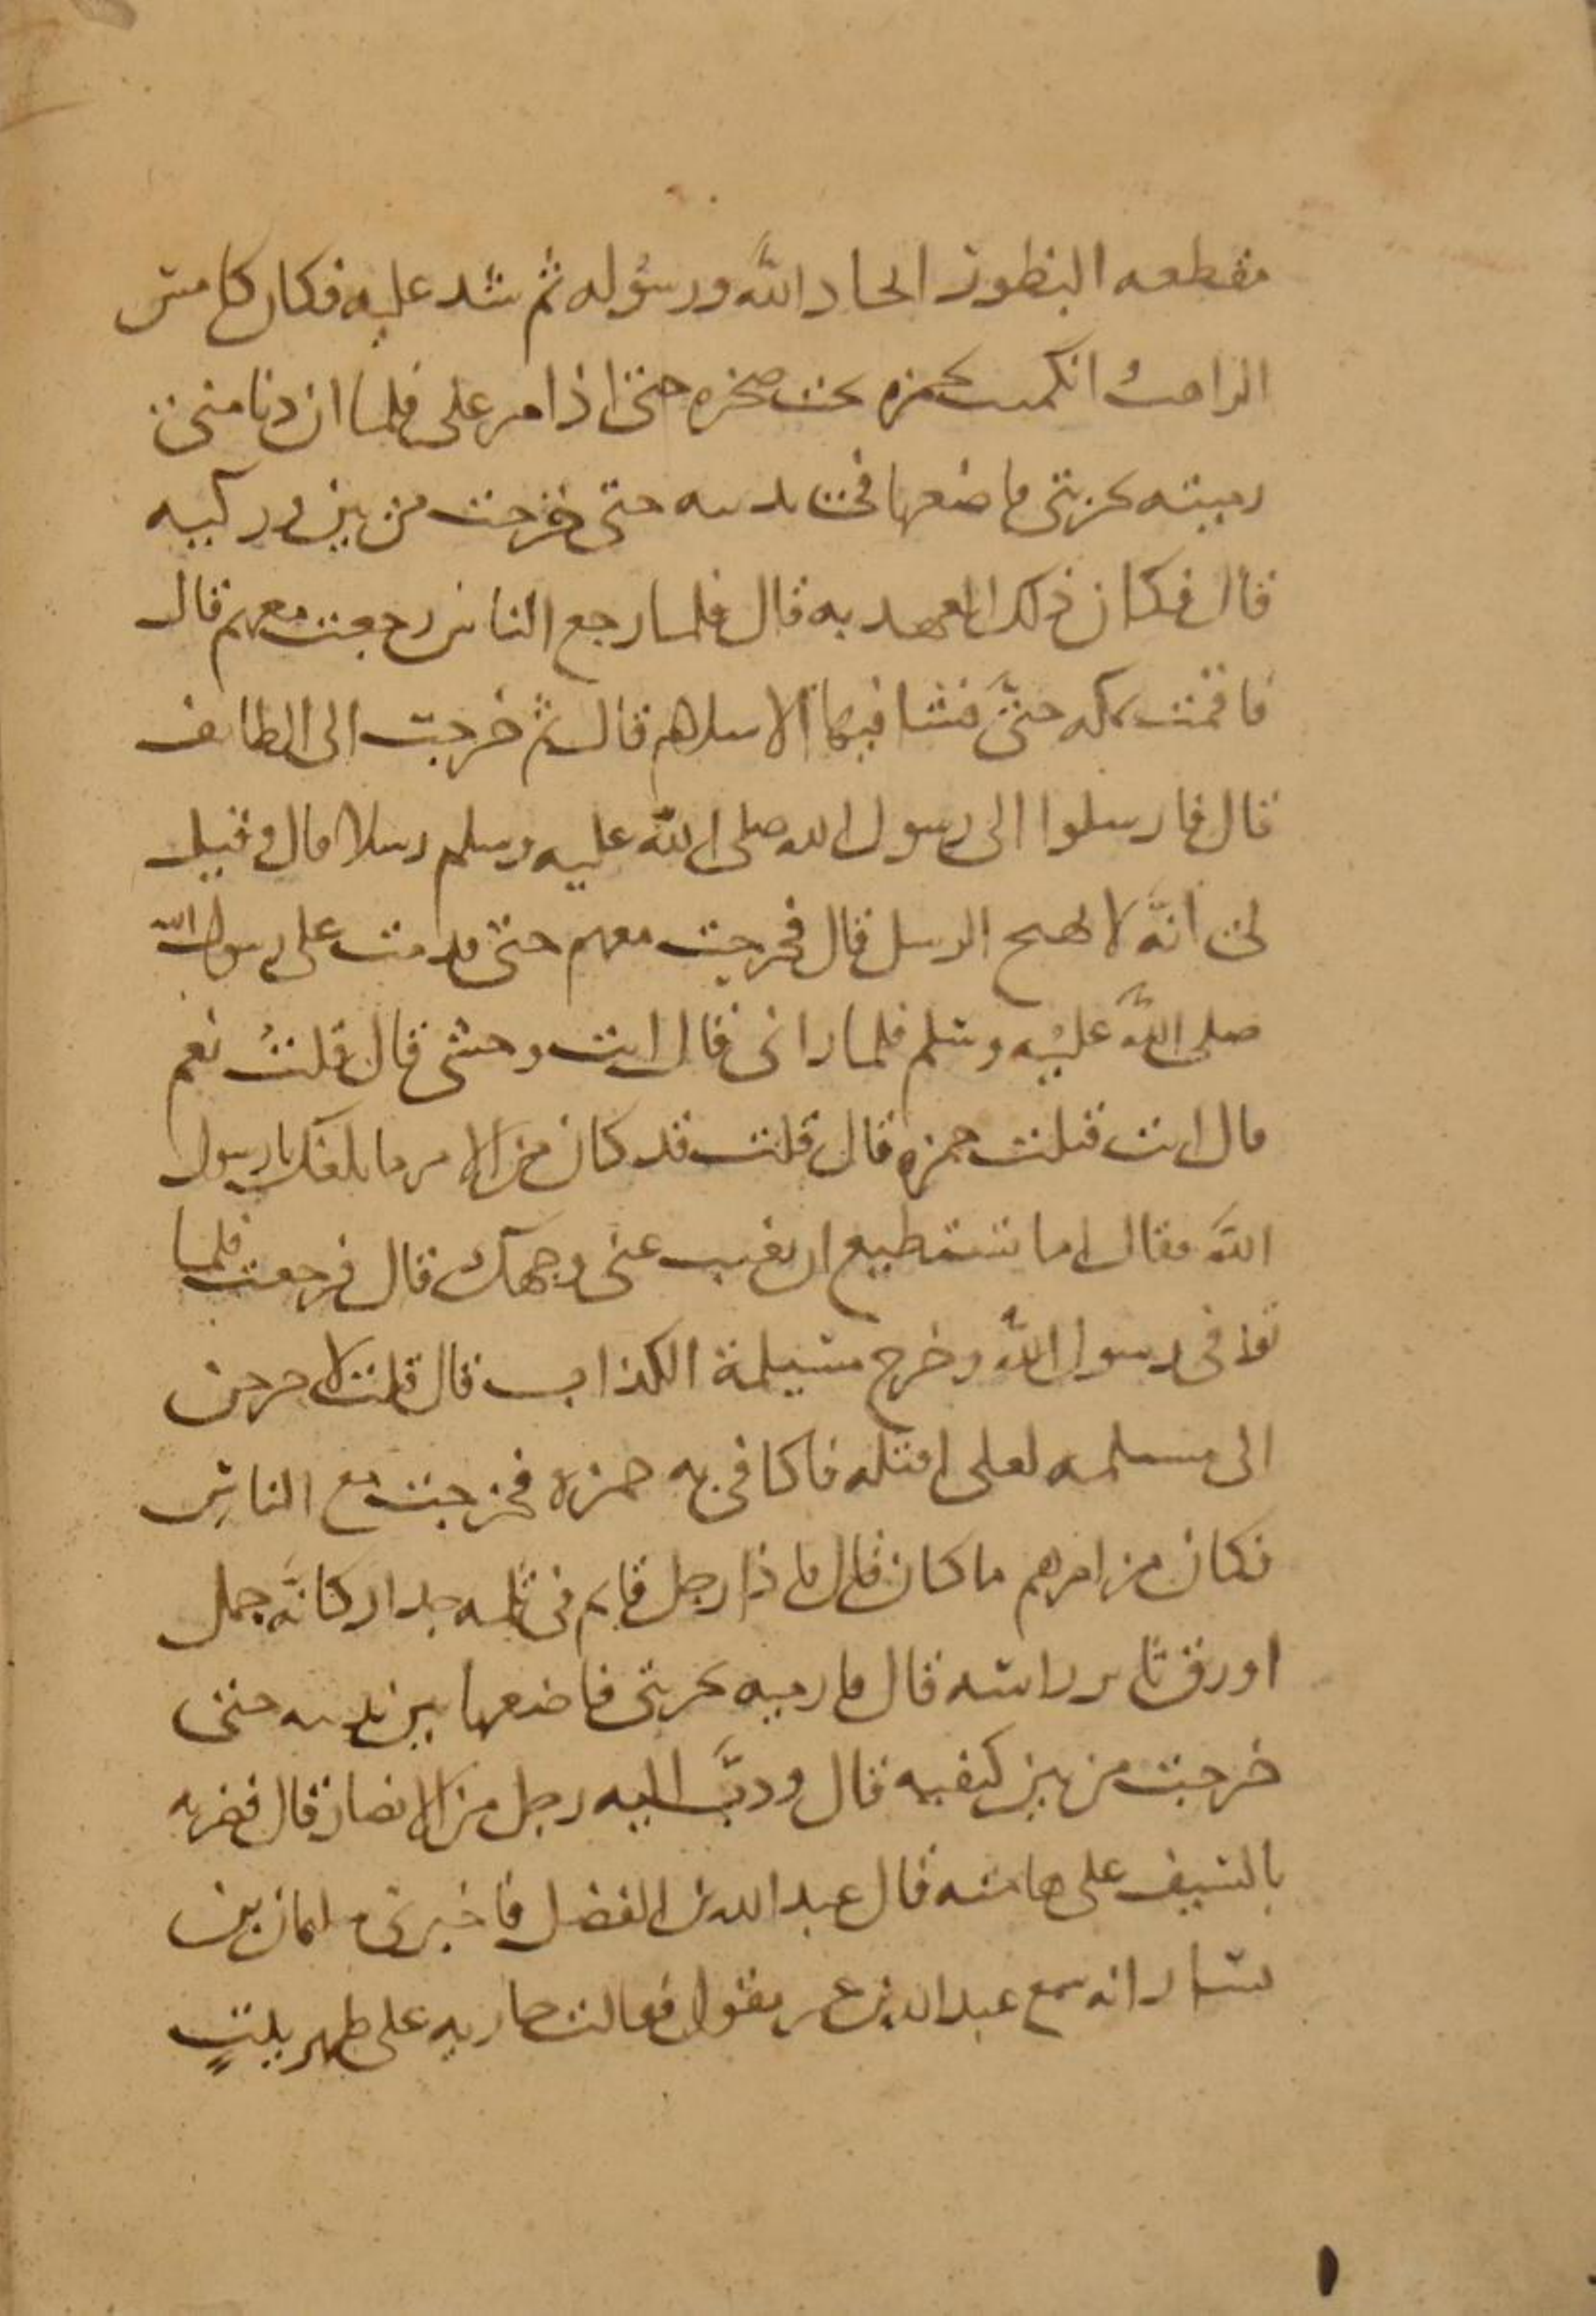 مقطعه البظور اتحاد الله ورسوله ثم شد عليه فكان كامس
الذاهب انكمنت لحمزه تحت صخره حتى اذا مر على فلما ان دنا منى
رميته بحربتى فاضعها فى ثدييه حتى خرجت من بين وركيه
قال فكان ذلك العهد به قال فلما رجع الناس رجعت معهم قال
فاقمت بمكه حتى فشا فيها الاسلام قال ثم خرجت الى الطائف
قال فارسلوا الى رسول الله صلى الله عليه وسلم رسلا قال وقيل
لى انه لا يهيج الرسل قال فخرجت معهم حتى قدمت على رسول الله
صلى الله عليه وسلم فلما رانى قال انت وحشى قال قلت نعم
قال انت قتلت حمزه قال قلت قد كان من الامر ما بلغك يا رسول
الله فقال اما تستطيع ان تغيب عنى وجهك قال فرجعت فلما
توفى رسول الله وخرج مسيلمة الكذاب قال قلت لاخرجن
الى مسيلمه لعلى اقتله فاكافى به حمزه فخرجت مع الناس
فكان من امرهم ما كان قال فاذا رجل قايم فى ثلمه جدار كانه جمل
اورق ثاير راسه قال فارميه بحربتى فاضعها بين ثدييه حتى
خرجت من بين كتفيه قال ودب اليه رجل من الانصار قال فضربه
بالسيف على هامته قال عبد الله بن الفضل فاخبرنى سليمان بن
يسار انه سمع عبد الله بن عمر يقول فقالت جاريه على ظهر بيت